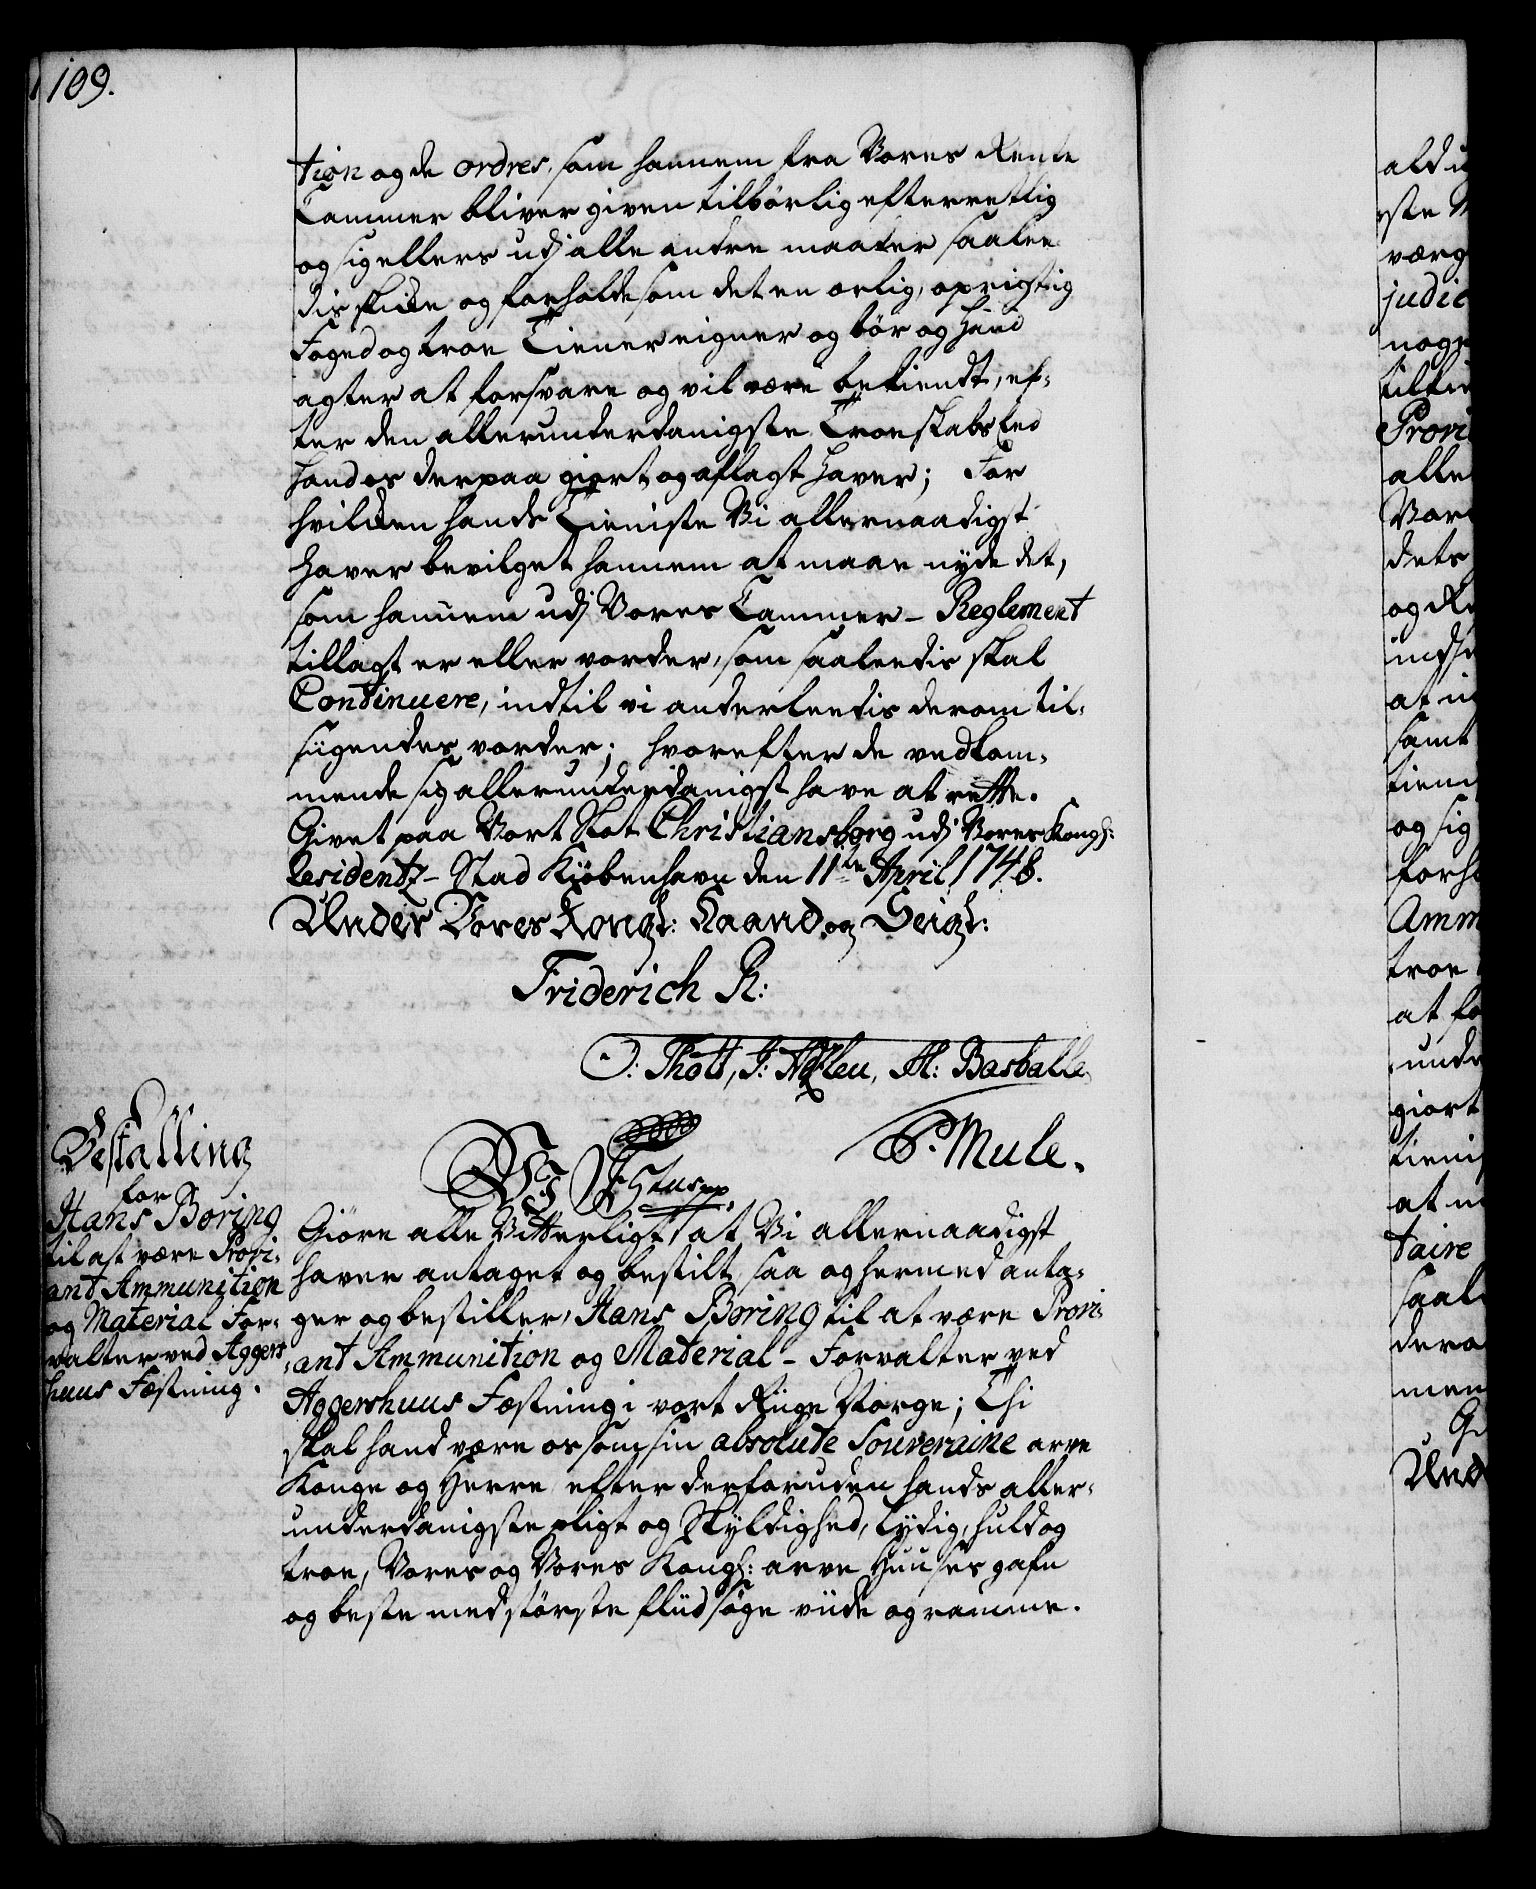 109.
tion og de ordres, som hannem fra Vores Rente
Cammer bliver given tilbørlig efterrettlig
og sig ellers udj alle andre maader saalee-
dis skicke og forholde som det en ærlig, oprigtig
Foged og troe Tiener eigner og bør og hand
agter at forsvare og vil være bekiendt, ef-
ter den allerunderdanigste Troeskabs Eed
hand os derpaa giort og aflagt haver; For
hvilcken hands Tieniste Vi allernaadigst
haver bevilget hannem at maae nyde det,
som hannem udj Vores Cammer-Reglement
tillagt er eller vorder, som saaleedis skal
Continuere, indtil vi anderleedis derom til-
siigendes vorder; hvorefter de vedkom-
mende sig allerunderdanigst have at rette.
Givet paa Vort Slot Christiansborg udj Vores Kongl:
Residentz-Stad Kiøbenhavn den 11te April 1748.
Under Vores Kongl: Haand og Seigl:
Friderich R:
O: Thott, J: Acleu, H: Basballe
P. Mule.
Bestalling
for
Hans Boring
til at være Provi-
ant Ammunition
og Material For-
valter ved Aggers
huus Fæstning.
Vj F 5tus pp.
Giøre alle Vitterligt, at Vi allernaadigst
haver antaget og bestilt, saa og hermed anta-
ger og bestiller, Hans Boring til at være Provi-
ant Ammunition og Material-Forvalter ved
Aggershuus Fæstning i vort Riige Norge; Thi
skal hand være os som sin absolute Souveraine arve
Konge og Herre, efter derforuden hands aller-
underdanigste pligt og Skyldighed, lydig, huld og
troe, Vores og Vores Kongl: arve Huuses gafn
og beste med største fliid søge viide og ramme.
ald u
ste
værg
judic
nog
tilti
Provi
alle
Vor
dets
og R
indse
at i
samt
tiem
og sig
forho
Amm
troe
at fo
unde
giort
tieni
at n
taire
saal
dero
men
Gi
Und